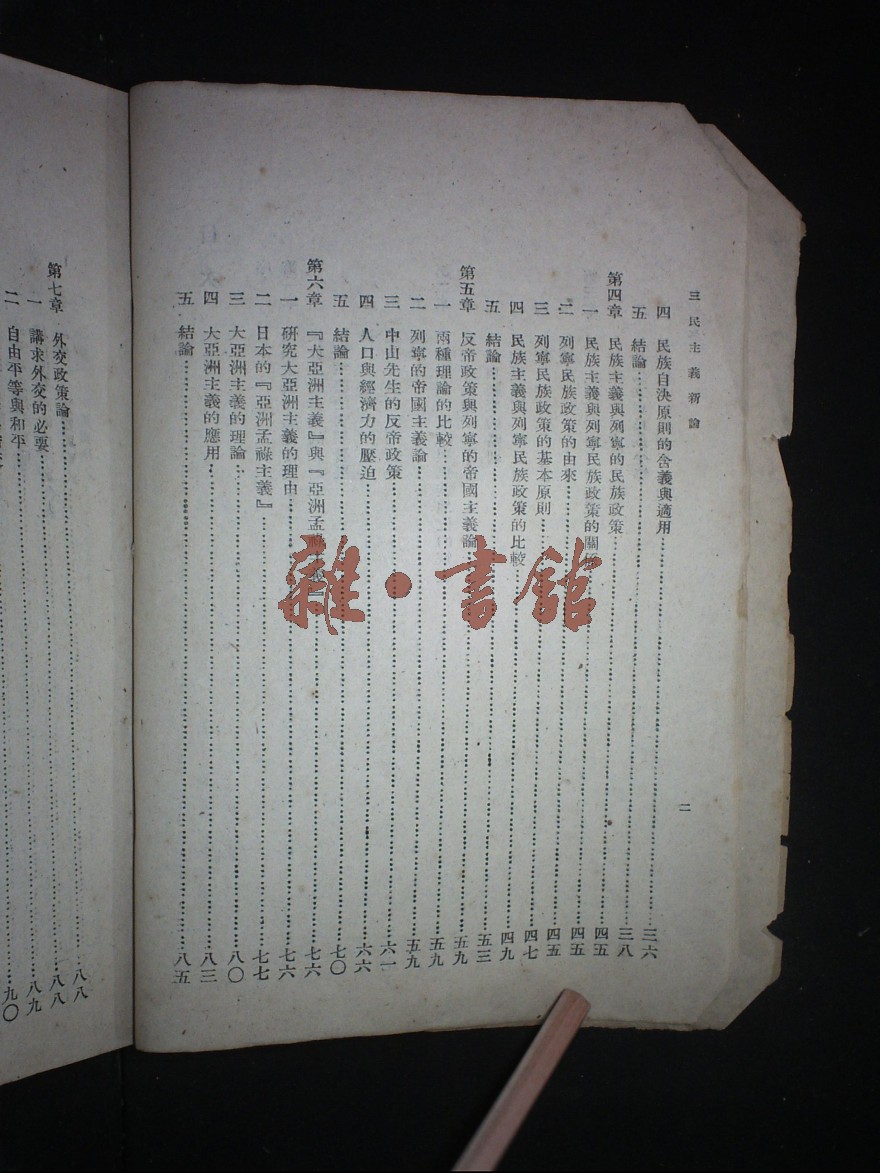 三民主義新論
二
四 民族自決原則的含義與適用…三六
五 結論…三八
第四章 民族主義與列寧的民族政策…四五
一 民族主義與列寧民族政策的關係…四五
二 列寧民族政策的由來…四五
三 列寧民族政策的基本原則…四七
四 民族主義與列寧民族政策的比較…四九
五 結論…五三
第五章 反帝政策與列寧的帝國主義論…五九
一 兩種理論的比較…五九
二 列寧的帝國主義論…五九
三 中山先生的反帝政策…六一
四 人口與經濟力的壓迫…六六
五 結論…七〇
第六章 『大亞洲主義』與『亞洲孟祿主義』…七六
一 研究大亞洲主義的理由…七六
二 日本的『亞洲孟祿主義』…七七
三 大亞洲主義的理論…八〇
四 大亞洲主義的應用…八三
五 結論…八五
第七章 外交政策論…八八
一 講求外交的必要…八八
二 自由平等與和平…八九
九〇
雜·書館